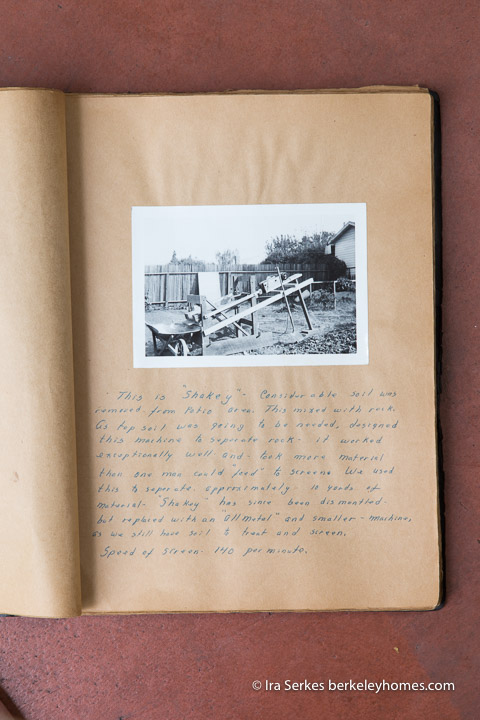 This is "Shakey" - Considerable soil was
removed from Patio area. This mixed with rock.
As top soil was going to be needed, designed
this machine to seperate rock - it worked
exceptionally well - and - took more material
than one man could "feed" to screen. We used
this to seperate approximately - 10 yards of
material - "Shakey" has since been dismantled -
but replaced with an "All metal" and smaller - machine,
as we still have soil to treat and screen.
Speed of screen - 140 per minute.
© Ira Serkes berkeleyhomes.com